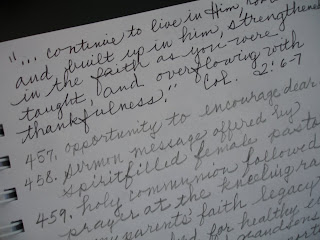 "... continue to live in Him, 
and built up in him, strengthened
in the faith as you were
taught, and overflowing with
thankfulness." Col. 2:6-7
457. opportunity to encourage dear
458. sermon message offered by
spiritfilled female pasto
459. holy communion followed
prayer at the kneeling ra
parents faith legacy
for healthy
grandsons